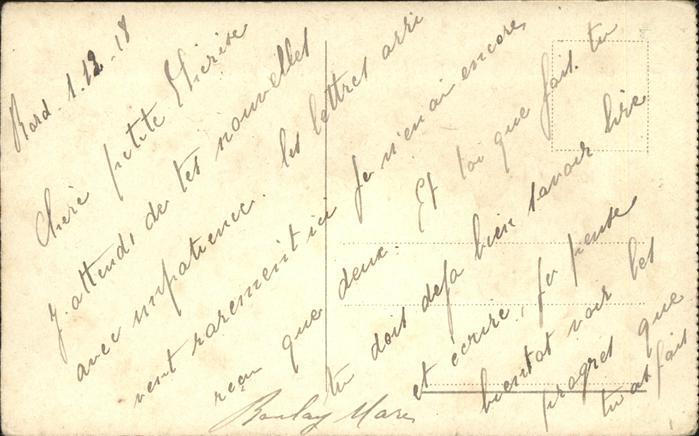 Bord 1.12-18
Chère petite Thérèse
J'attends de tes nouvelles
avec impatience. les lettres arri
vent rarement ici je n'en ai encore
reçu que deux. Et toi que fais tu
tu dois deja bien savoir lire
et écrire, je pense
bientot voir les
progres que
tu as fait
Boulay Marc